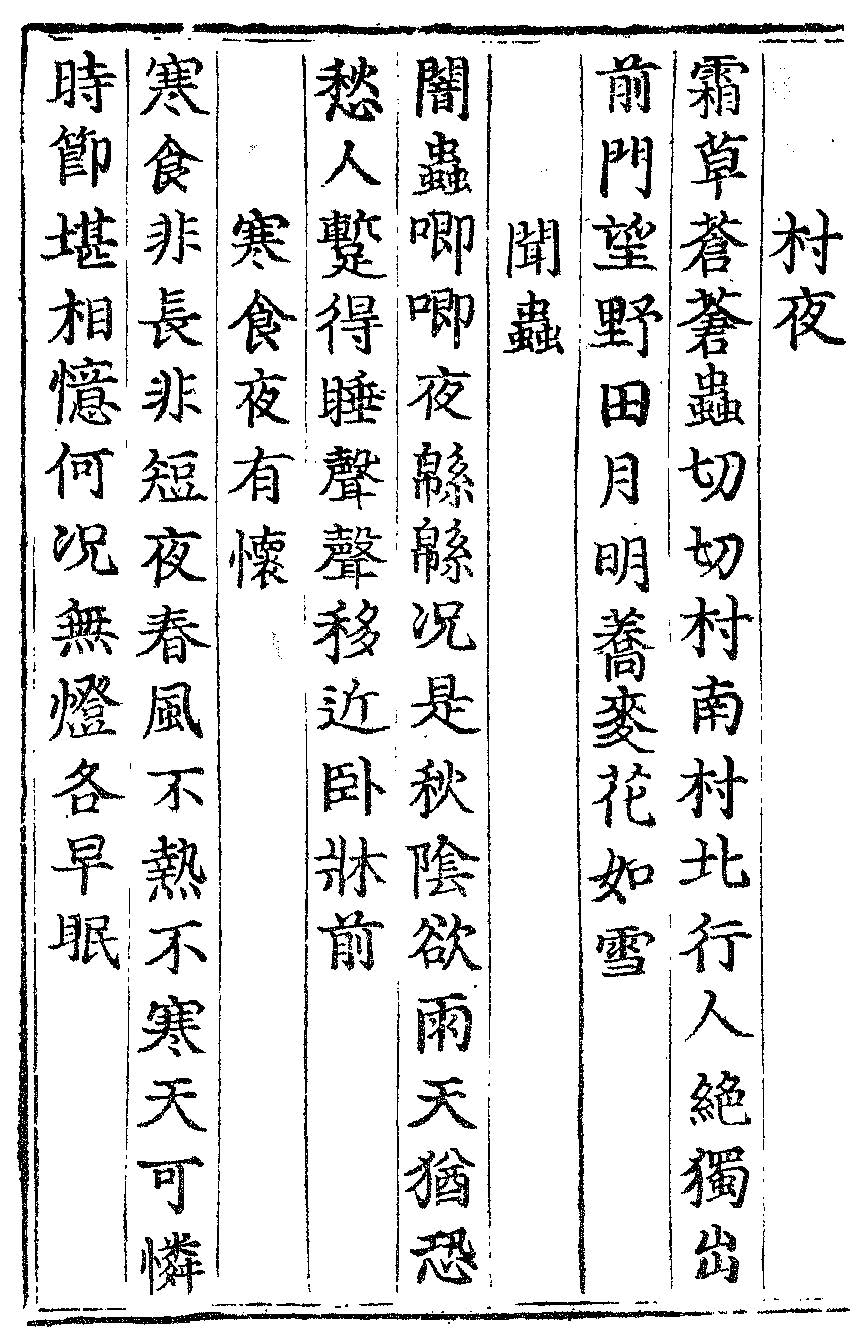 村夜
霜草蒼蒼蟲切切村南村北行人絶獨出
前門望野田月明蕎麥花如雪
聞蟲
闇蟲唧唧夜緜緜况是秋陰欲雨天猶恐
愁人蹔得睡聲聲移近卧牀前
寒食夜有懷
寒食非長非短夜春風不熱不寒天可憐
時節堪相憶何况無燈各早眠